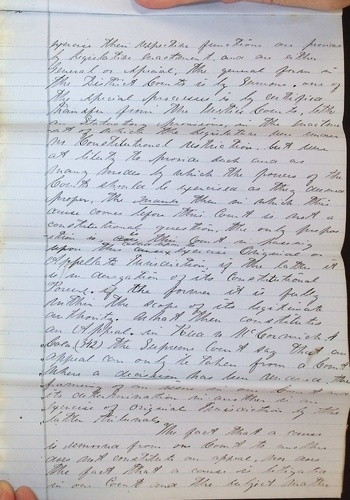 exercise their respective functions are provided
by Legislative enactment, and are either
General or Special. The general form in
the District Courts is by Summons, one of
the special processes is by certified
transfer from the Justice Courts,
are Statutory provisions, in the enactment
of which the Legislature were under
no Constitutional restriction, but were
at liberty to provide such and as
many modes by which the powers of the
Court should be exercised as they deemed
proper, the manner then in which this
cause comes before this Court is not a
constitutional question, the only proper
is this Court in passing
upon the cause exercising Original or
Appellate Jurisdiction, if the latter it
is in derogation of its Constitutional
Power, if the former it is fully
within the scope of its legitimate
authority. What then constitutes
an Appeal. In Reed v McCormick 4
Cala (342) the Supreme Court say that an
appeal can only be taken from a Court
where a decision has been rendered, the
of an issue in one Court and
its determination in another is an
exercise of Original Jurisdiction by the
latter tribunal
The fact that a cause
is removed from one Court to another
does not constitute an appeal, nor does
the fact that a cause is litigated
in one Court and the subject matter